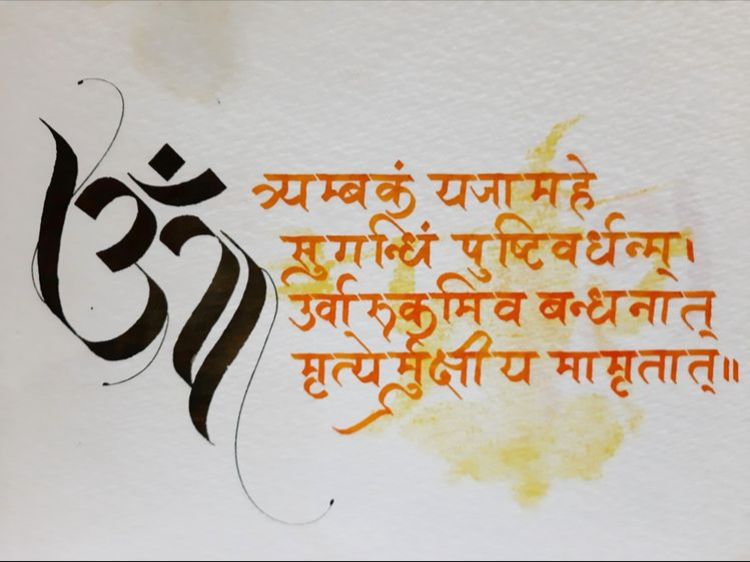 ॐ
त्र्यम्बकं यजामहे
सुगन्धिं पुष्टिवर्धन्म्।
उर्वारूकमिव बन्धनात्
मृत्येर्मुक्षीय मामृतात्॥